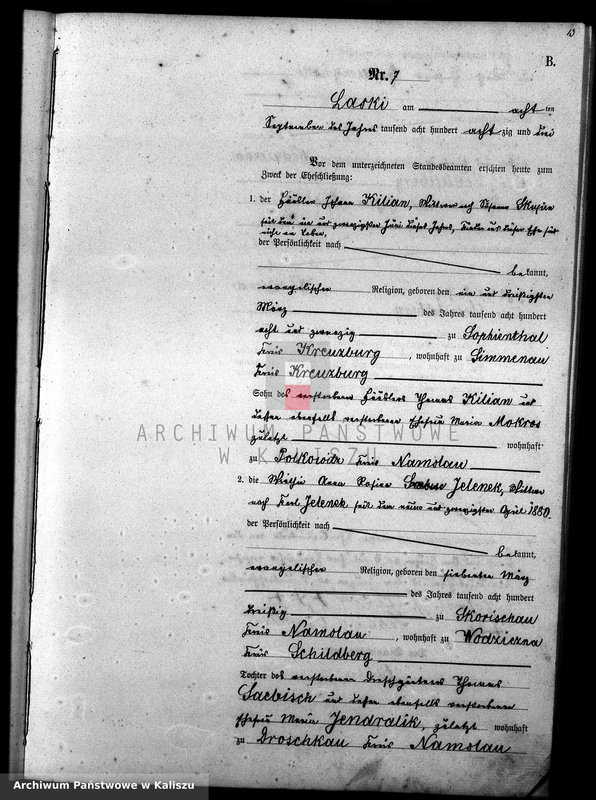 B.
Nr. 7
Laski am acht ten
September des Jahres tausend acht hundert acht zig und drei
Vor dem unterzeichneten Standesbeamten erschien heute zum
Zweck der Eheschließung:
1. der Häusler Johann Kilian, Wittwer nach Susanna
seit dem ein und zwanzigsten Juni dieses Jahres, Kinder aus dieser Ehe sind
nicht am Leben,
der Persönlichkeit nach
bekannt,
evangelischer Religion, geboren den ein und dreißigsten
März des Jahres tausend acht hundert
acht und zwanzig zu Sophienthal
Kreis Kreuzburg, wohnhaft zu Simmenau
Kreis Kreuzburg
Sohn des verstorbenen Häuslers Thomas Kilian und
dessen ebenfalls verstorbenen Ehefrau Maria Mokros
zuletzt wohnhaft
zu Polkowitz Kreis Namslau
2. die Wittwe Anna Rosina Jelenek, Wittwe
nach Karl Jelenek seit dem neun und zwanzigsten April 1880.
der Persönlichkeit nach
bekannt,
evangelischer Religion, geboren den siebenten März
des Jahres tausend acht hundert
dreißig zu Skorischau
Kreis Namslau, wohnhaft zu Wodziczna
Kreis Schildberg
Tochter des verstorbenen Dreschgärtners Thomas
Saebisch und dessen ebenfalls verstorbenen
Ehefrau Maria Jendralik, zuletzt wohnhaft
zu Droschkau Kreis Namslau
ARCHIWUM PAŃSTWOWE
W KALISZU
Archiwum Państwowe w Kaliszu